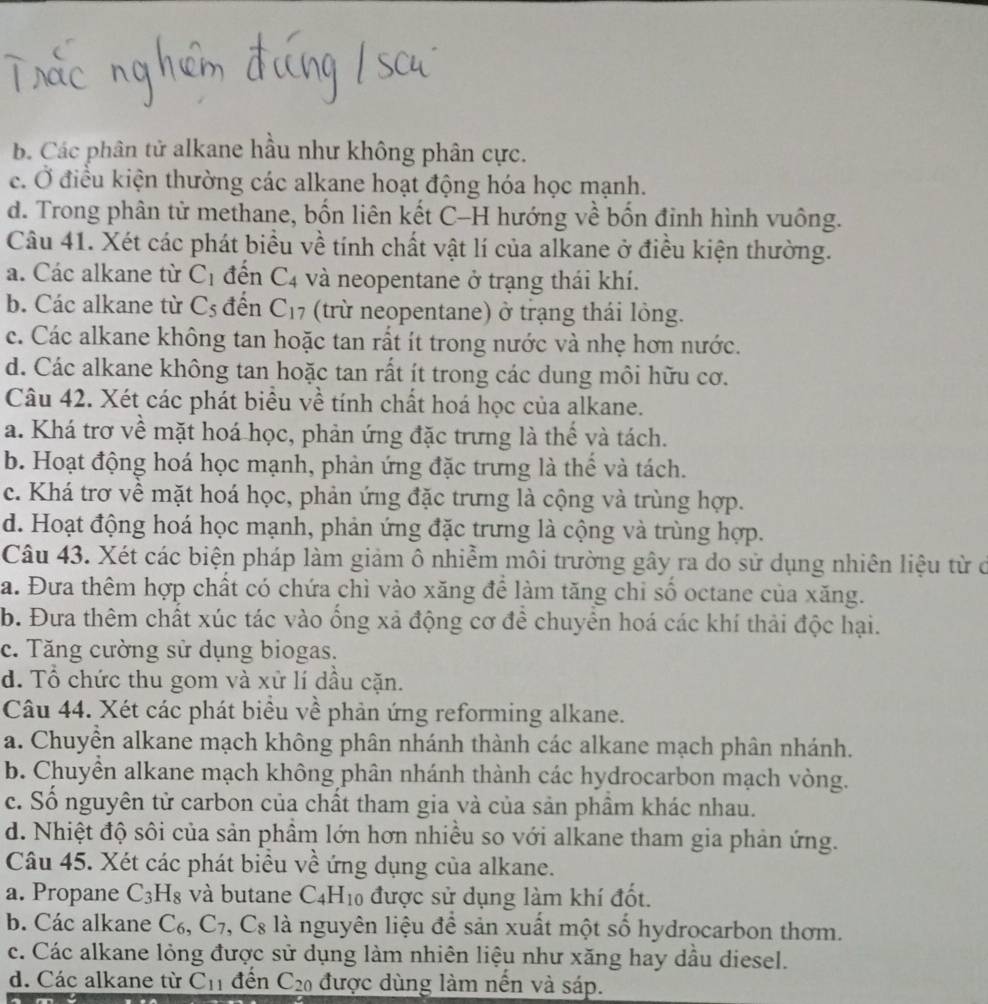 Trắc nghêm đúng / sai
b. Các phân tử alkane hầu như không phân cực.
c. Ở điều kiện thường các alkane hoạt động hóa học mạnh.
d. Trong phân tử methane, bốn liên kết C–H hướng về bốn đỉnh hình vuông.
Câu 41. Xét các phát biểu về tính chất vật lí của alkane ở điều kiện thường.
a. Các alkane từ C₁ đến C₄ và neopentane ở trạng thái khí.
b. Các alkane từ C₅ đến C₁₇ (trừ neopentane) ở trạng thái lỏng.
c. Các alkane không tan hoặc tan rất ít trong nước và nhẹ hơn nước.
d. Các alkane không tan hoặc tan rất ít trong các dung môi hữu cơ.
Câu 42. Xét các phát biểu về tính chất hoá học của alkane.
a. Khá trơ về mặt hoá học, phản ứng đặc trưng là thế và tách.
b. Hoạt động hoá học mạnh, phản ứng đặc trưng là thế và tách.
c. Khá trơ về mặt hoá học, phản ứng đặc trưng là cộng và trùng hợp.
d. Hoạt động hoá học mạnh, phản ứng đặc trưng là cộng và trùng hợp.
Câu 43. Xét các biện pháp làm giảm ô nhiễm môi trường gây ra do sử dụng nhiên liệu từ
a. Đưa thêm hợp chất có chứa chì vào xăng để làm tăng chỉ số octane của xăng.
b. Đưa thêm chất xúc tác vào ống xả động cơ để chuyển hoá các khí thải độc hại.
c. Tăng cường sử dụng biogas.
d. Tổ chức thu gom và xử lí dầu cặn.
Câu 44. Xét các phát biểu về phản ứng reforming alkane.
a. Chuyển alkane mạch không phân nhánh thành các alkane mạch phân nhánh.
b. Chuyển alkane mạch không phân nhánh thành các hydrocarbon mạch vòng.
c. Số nguyên tử carbon của chất tham gia và của sản phẩm khác nhau.
d. Nhiệt độ sôi của sản phẩm lớn hơn nhiều so với alkane tham gia phản ứng.
Câu 45. Xét các phát biểu về ứng dụng của alkane.
a. Propane C₃H₈ và butane C₄H₁₀ được sử dụng làm khí đốt.
b. Các alkane C₆, C₇, C₈ là nguyên liệu để sản xuất một số hydrocarbon thơm.
c. Các alkane lỏng được sử dụng làm nhiên liệu như xăng hay dầu diesel.
d. Các alkane từ C₁₁ đến C₂₀ được dùng làm nến và sáp.